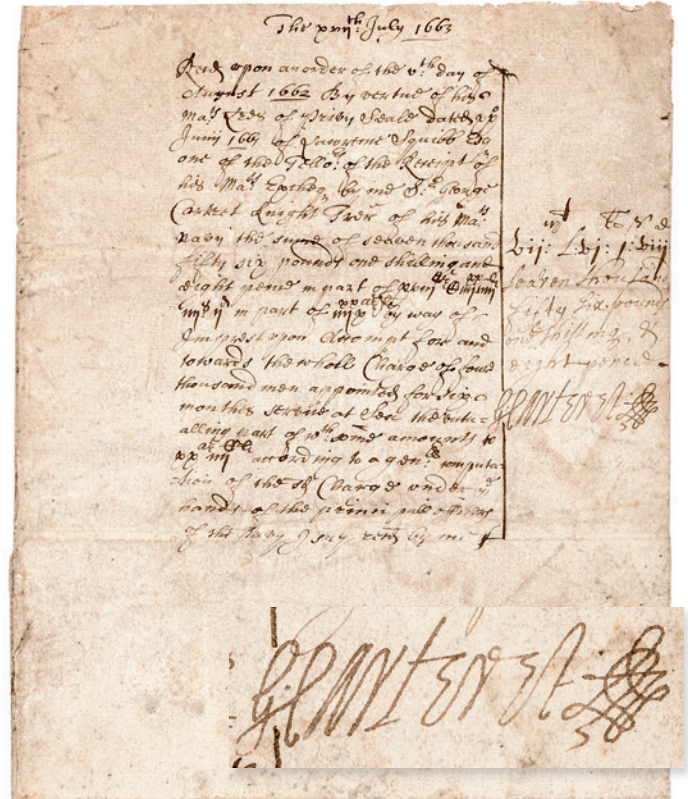 The xvijth July 1663
Recd upon an order of the vth day of
August 1662 By vertue of his
Mats Lres of Privy Seale dated xxo
Junij 1661 of Lawrence Squibb Esq
one of the Tellors of the Receipt of
his Mats Excheqr by me Sr George
Carteret Knight Trer of his Mats
Navy the sume of seaven thousand
fifty six pounds one shilling and
eight pence in part of
in part of by way of
Imprest upon Accompt for and
towards the whole Charge of foure
thousand men appointed for six
months service at Sea the victu-
alling part of wch some amounts to
according to a genll computa
tion of the sd Charge under ye
hands of the princi pall officers
of the Navy I say recd by me
vij: Lvj: j: viij
seaven thousand
fifty six pounds
one shilling, &
eight pence
GCarteret
GCarteret